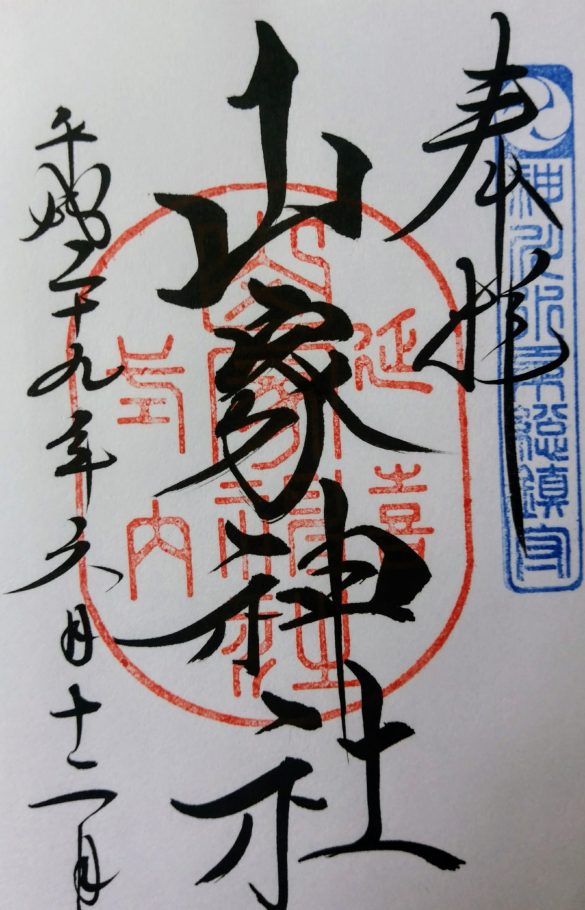 神川水系總鎮守
奉拝
山家神社
延喜
山家神社
式内
平成二十九年六月十二日